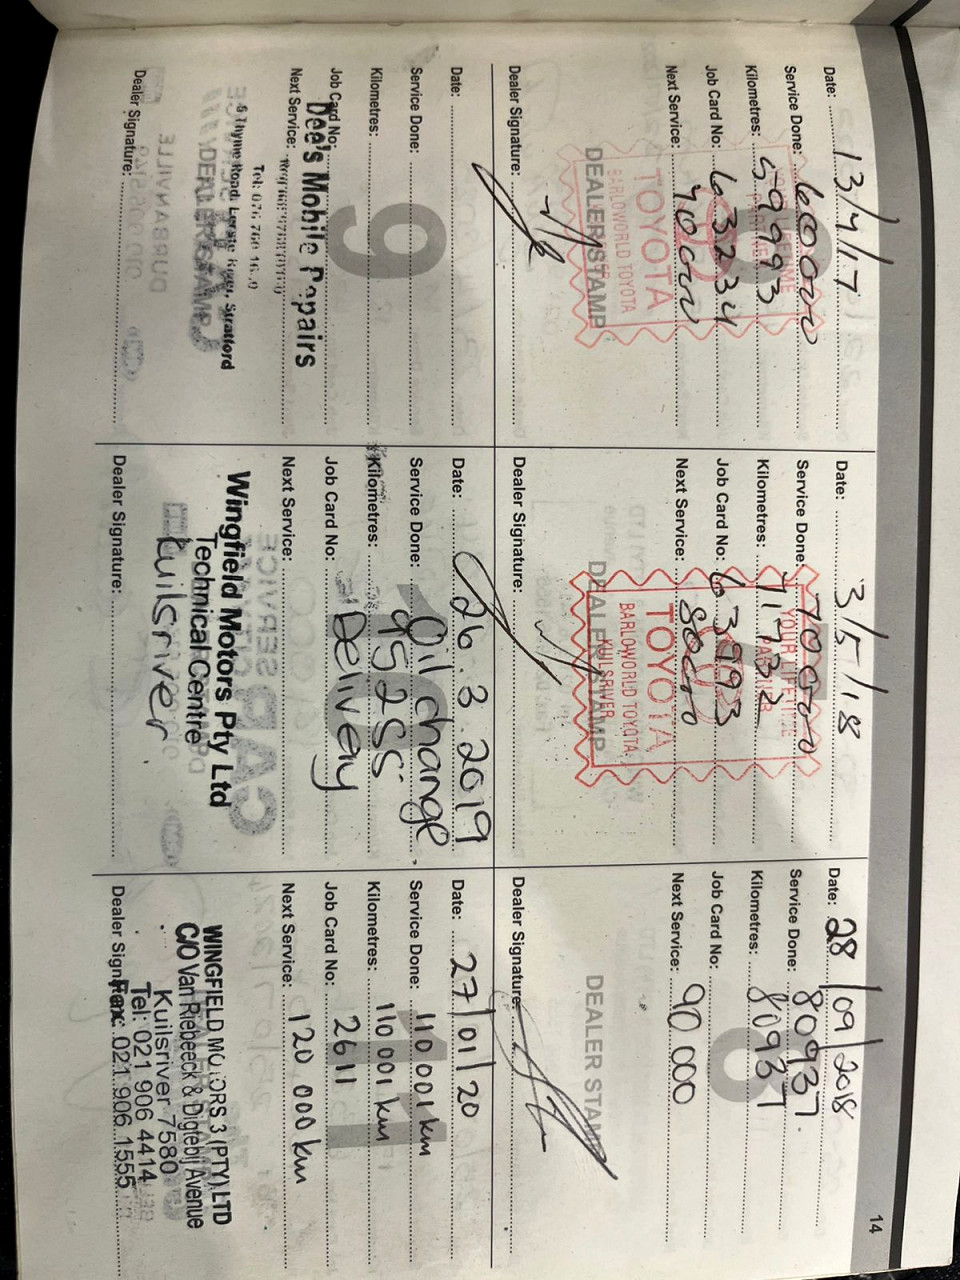 14
Date: 13/4/17
Service Done: 60000
Kilometres: 59993
Job Card No: 63234
Next Service: 70000
TOYOTA
BARLOWORLD TOYOTA
DEALER STAMP
Dealer Signature:
Date: 3/5/18
Service Done: 70000
YOUR LIFETIME
PARTNER
Kilometres: 71732
Job Card No: 63993
Next Service: 80000
TOYOTA
BARLOWORLD TOYOTA
KUILSRIVER
DEALER STAMP
Dealer Signature:
Date: 28/09/2018
Service Done: 80937.
Kilometres: 80937
Job Card No:
Next Service: 90 000
8
DEALER STAMP
Dealer Signature:
Date:
Service Done:
Kilometres:
9
Job Card No:
Dee's Mobile Repairs
Next Service:
6 Thyme Road,
Tel: 076 760
DEALER STAMP
Dealer Signature:
Date: 26.3.2019
Service Done: Oil change
Kilometres: 95255
10
Job Card No: Delivery
Next Service:
Wingfield Motors Pty Ltd
Technical Centre
Kuilsriver
Dealer Signature:
Date: 27/01/20
Service Done: 110 001 km
Kilometres: 110 001 km
11
Job Card No: 2611
Next Service: 120 000 km
WINGFIELD MOTORS 3 (PTY) LTD
C/O Van Riebeeck & Digtebij Avenue
Kuilsriver 7580
Tel: 021 906 4414
Dealer Signature:
Fax: 021 906 1555